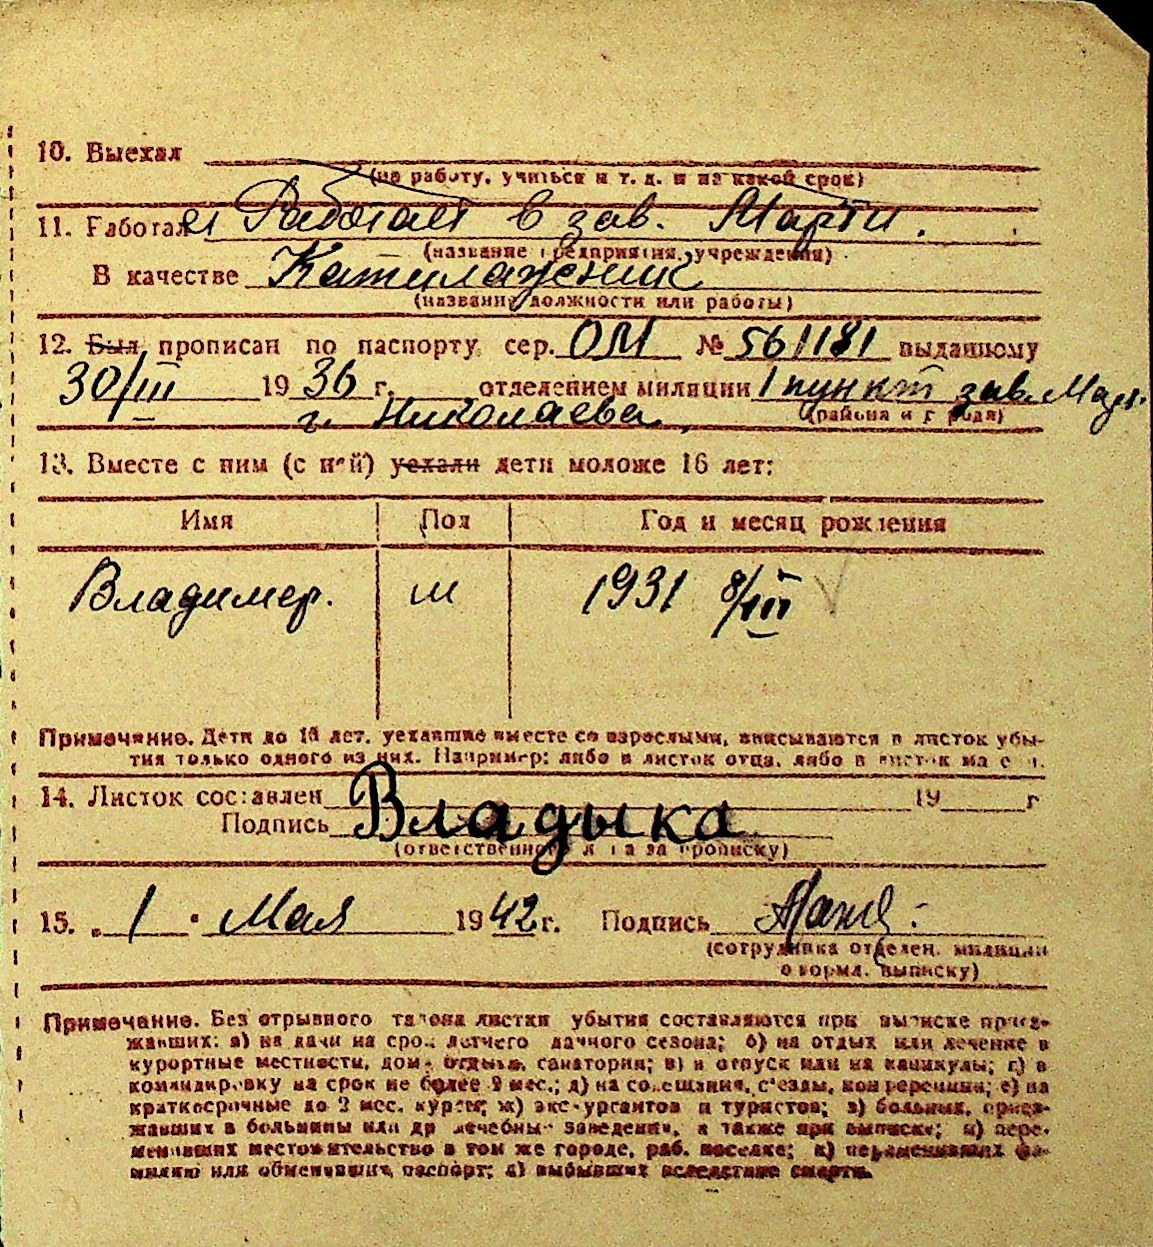 10. Выехал
(на работу, учиться и т. д. и на какой срок)
11. Работал ет Работает в зав. Марти.
(название предприятия, учреждения)
В качестве Катилаженик
(название должности или работы)
12. Был прописан по паспорту сер. ОМ № 561181 выданному
30/III 1936 г. отделением милиции 1 пункт зав. Марти
г. Николаева, (района и города)
13. Вместе с ним (с ней) уехали дети моложе 16 лет:
Имя Пол Год и месяц рождения
Владимер. м 1931 8/III
Примечание. Дети до 16 лет, уехавшие вместе со взрослыми, вписываются в листок убы-
тия только одного из них. Например: либо в листок отца, либо в листок матери.
14. Листок составлен 19 г
Подпись Владыка
(ответственного лица за прописку)
15. „ 1 " Мая 1942 г. Подпись
(сотрудника отделен. милиции
оформл. выписку)
Примечание. Без отрывного талона листки убытия составляются при выписке приез-
жавших: а) на дачи на срок летнего дачного сезона; б) на отдых или лечение в
курортные местности, дома отдыха, санатории; в) в отпуск или на каникулы; г) в
командировку на срок не более 2 мес.; д) на совещания, съезды, конференции; е) на
краткосрочные до 2 мес. курсы; ж) экскурсантов и туристов; з) больных, приез-
жавших в больницы или др лечебные заведения, а также при выписке; и) пере-
менивших местожительство в том же городе, раб. поселке; к) переменивших фа-
милию или обменявших паспорт; л) выбывших вследствие смерти.